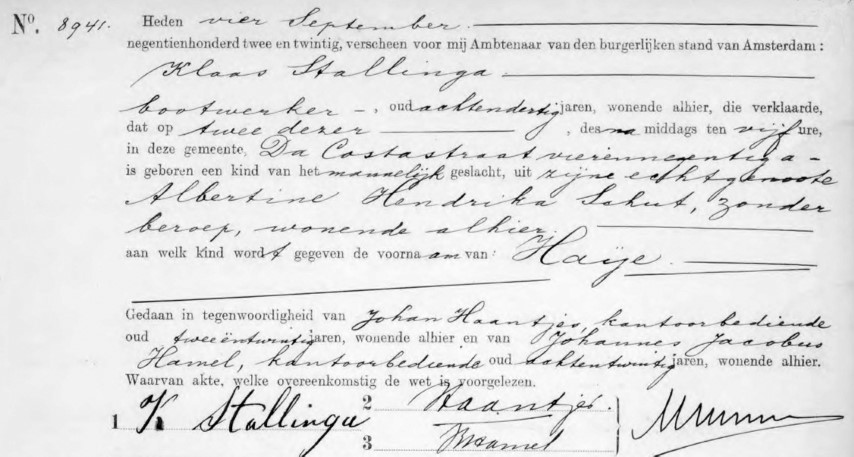 No. 8941. Heden vier September.
negentienhonderd twee en twintig, verscheen voor mij Ambtenaar van den burgerlijken stand van Amsterdam:
Klaas Stallinga
bootwerker, oud achtendertig jaren, wonende alhier, die verklaarde,
dat op twee dezer, des na middags ten vijf ure,
in deze gemeente, Da Costastraat vierennegentig a
is geboren een kind van het mannelijk geslacht, uit zijne echtgenoote
Albertine Hendrika Schut, zonder
beroep, wonende alhier.
aan welk kind wordt gegeven de voornaam van: Haije.
Gedaan in tegenwoordigheid van Johan Haantjes, kantoorbediende
oud tweeëntwintig jaren, wonende alhier en van Johannes Jacobus
Hamel, kantoorbediende oud achtentwintig jaren, wonende alhier.
Waarvan akte, welke overeenkomstig de wet is voorgelezen.
1 K Stallinga 2 Haantjes.
3 Hamel